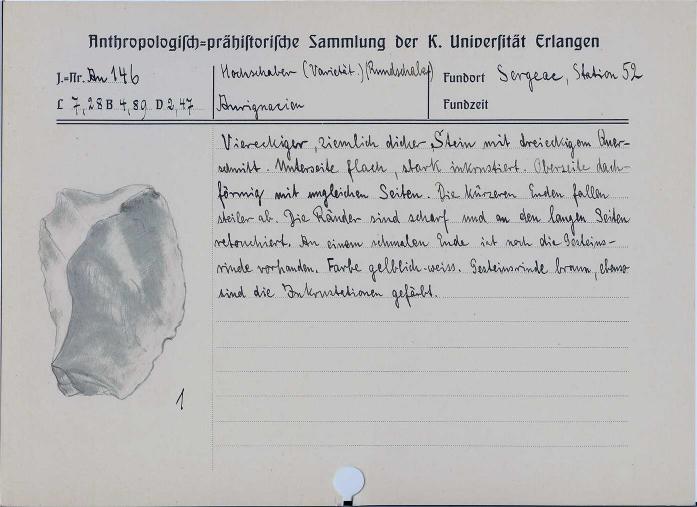 Anthropologisch=prähistorische Sammlung der K. Universität Erlangen
J.=Nr. An 146
Hochschaber (Varietät.) (Rundschaber)
Fundort Sergeac, Station 52
L 7,28 B 4,89 D 2,47
Aurignacien
Fundzeit
Viereckiger, ziemlich dicker Stein mit dreieckigem Quer-
schnitt. Unterseite flach, stark inkrustiert. Oberseite dach-
förmig mit ungleichen Seiten. Die kürzeren Enden fallen
steiler ab. Die Ränder sind scharf und an den langen Seiten
retouchiert. An einem schmalen Ende ist noch die Gesteins-
rinde vorhanden. Farbe gelblich-weiss. Gesteinsrinde braun, ebenso
sind die Inkrustationen gefärbt.
1